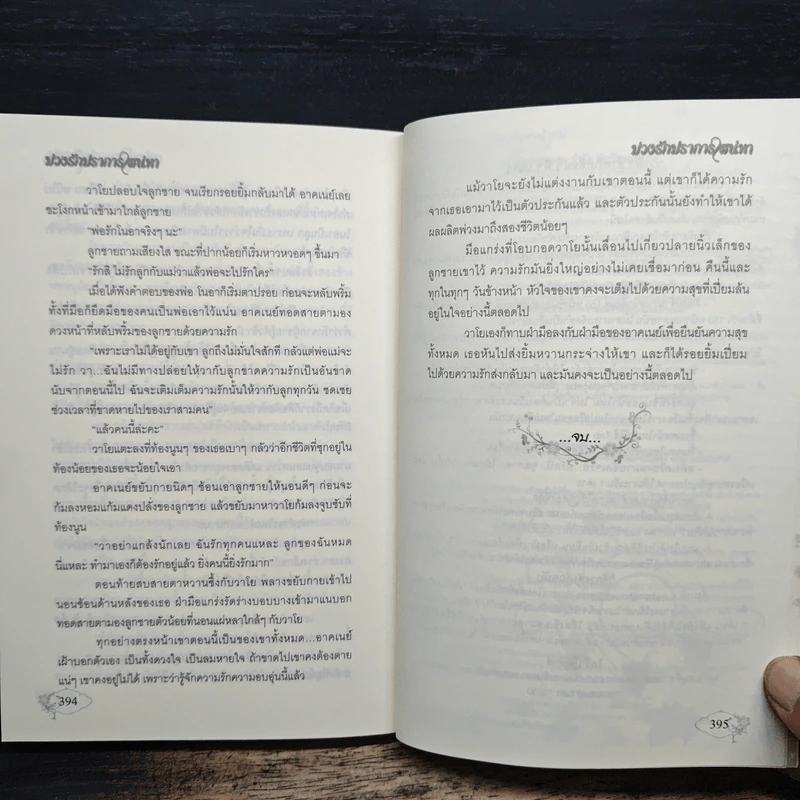 บ่วงรักปราการเสน่หา
วาโยปลอบใจลูกชาย จนเรียกรอยยิ้มกลับมาได้ อาคเนย์เลย
ชะโงกหน้าเข้ามาใกล้ลูกชาย
"พ่อรักโนอาจริงๆ นะ"
ลูกชายถามเสียงใส ขณะที่ปากน้อยก็เริ่มหาวหวอดๆ ขึ้นมา
"รักสิ ไม่รักลูกกับแม่ว่าแล้วพ่อจะไปรักใคร"
เมื่อได้ฟังคำตอบของพ่อ โนอาก็เริ่มตาปรอย ก่อนจะหลับพริ้ม
ทั้งที่มือก็ยึดมือของคนเป็นพ่อเอาไว้แน่น อาคเนย์ทอดสายตามอง
ดวงหน้าที่หลับพริ้มของลูกชายด้วยความรัก
"เพราะเราไม่ได้อยู่กับเขา ลูกถึงไม่มั่นใจสักที กลัวแต่พ่อแม่จะ
ไม่รัก วา...ฉันไม่มีทางปล่อยให้วากับลูกขาดความรักเป็นอันขาด
นับจากตอนนี้ไป ฉันจะเติมเต็มความรักนั้นให้วากับลูกทุกวัน ชดเชย
ช่วงเวลาที่ขาดหายไปของเราสามคน"
"แล้วคนนี้ล่ะคะ"
วาโยแตะลงที่ท้องนูนๆ ของเธอเบาๆ กลัวว่าอีกชีวิตที่ซุกอยู่ใน
ท้องน้อยของเธอจะน้อยใจเอา
อาคเนย์ขยับกายนิดๆ ช้อนเอาลูกชายให้นอนดีๆ ก่อนจะ
ก้มลงหอมแก้มแดงปลั่งของลูกชาย แล้วขยับมาหาวาโยก้มลงจูบซับที่
ท้องนูน
"วาอย่าแกล้งนักเลย ฉันรักทุกคนแหละ ลูกของฉันหมด
นี่แหละ ทำมาเองก็ต้องรักอยู่แล้ว ยิ่งคนนี้ยิ่งรักมาก"
ตอนท้ายสบสายตาหวานซึ้งกับวาโย พลางขยับกายเข้าไป
นอนซ้อนด้านหลังของเธอ ฝ่ามือแกร่งรัดร่างบอบบางเข้ามาแนบอก
ทอดสายตามองลูกชายตัวน้อยที่นอนแผ่หลาใกล้ๆ กับวาโย
ทุกอย่างตรงหน้าเขาตอนนี้เป็นของเขาทั้งหมด...อาคเนย์
เฝ้าบอกตัวเอง เป็นทั้งดวงใจ เป็นลมหายใจ ถ้าขาดไปเขาคงต้องตาย
แน่ๆ เขาคงอยู่ไม่ได้ เพราะว่ารู้จักความรักความอบอุ่นนี้แล้ว
394
บ่วงรักปราการเสน่หา
แม้วาโยจะยังไม่แต่งงานกับเขาตอนนี้ แต่เขาก็ได้ความรัก
จากเธอเอามาไว้เป็นตัวประกันแล้ว และตัวประกันนั้นยังทำให้เขาได้
ผลผลิตพ่วงมาถึงสองชีวิตน้อยๆ
มือแกร่งที่โอบกอดวาโยนั้นเลื่อนไปเกี่ยวปลายนิ้วเล็กของ
ลูกชายเขาไว้ ความรักมันยิ่งใหญ่อย่างไม่เคยเชื่อมาก่อน คืนนี้และ
ทุกในทุกๆ วันข้างหน้า หัวใจของเขาคงจะเต็มไปด้วยความสุขที่เปี่ยมล้น
อยู่ในใจอย่างนี้ตลอดไป
วาโยเองก็ทาบฝ่ามือลงกับฝ่ามือของอาคเนย์เพื่อยืนยันความสุข
ทั้งหมด เธอหันไปส่งยิ้มหวานกระจ่างให้เขา และก็ได้รอยยิ้มเปี่ยม
ไปด้วยความรักส่งกลับมา และมันคงจะเป็นอย่างนี้ตลอดไป
...จบ...
395